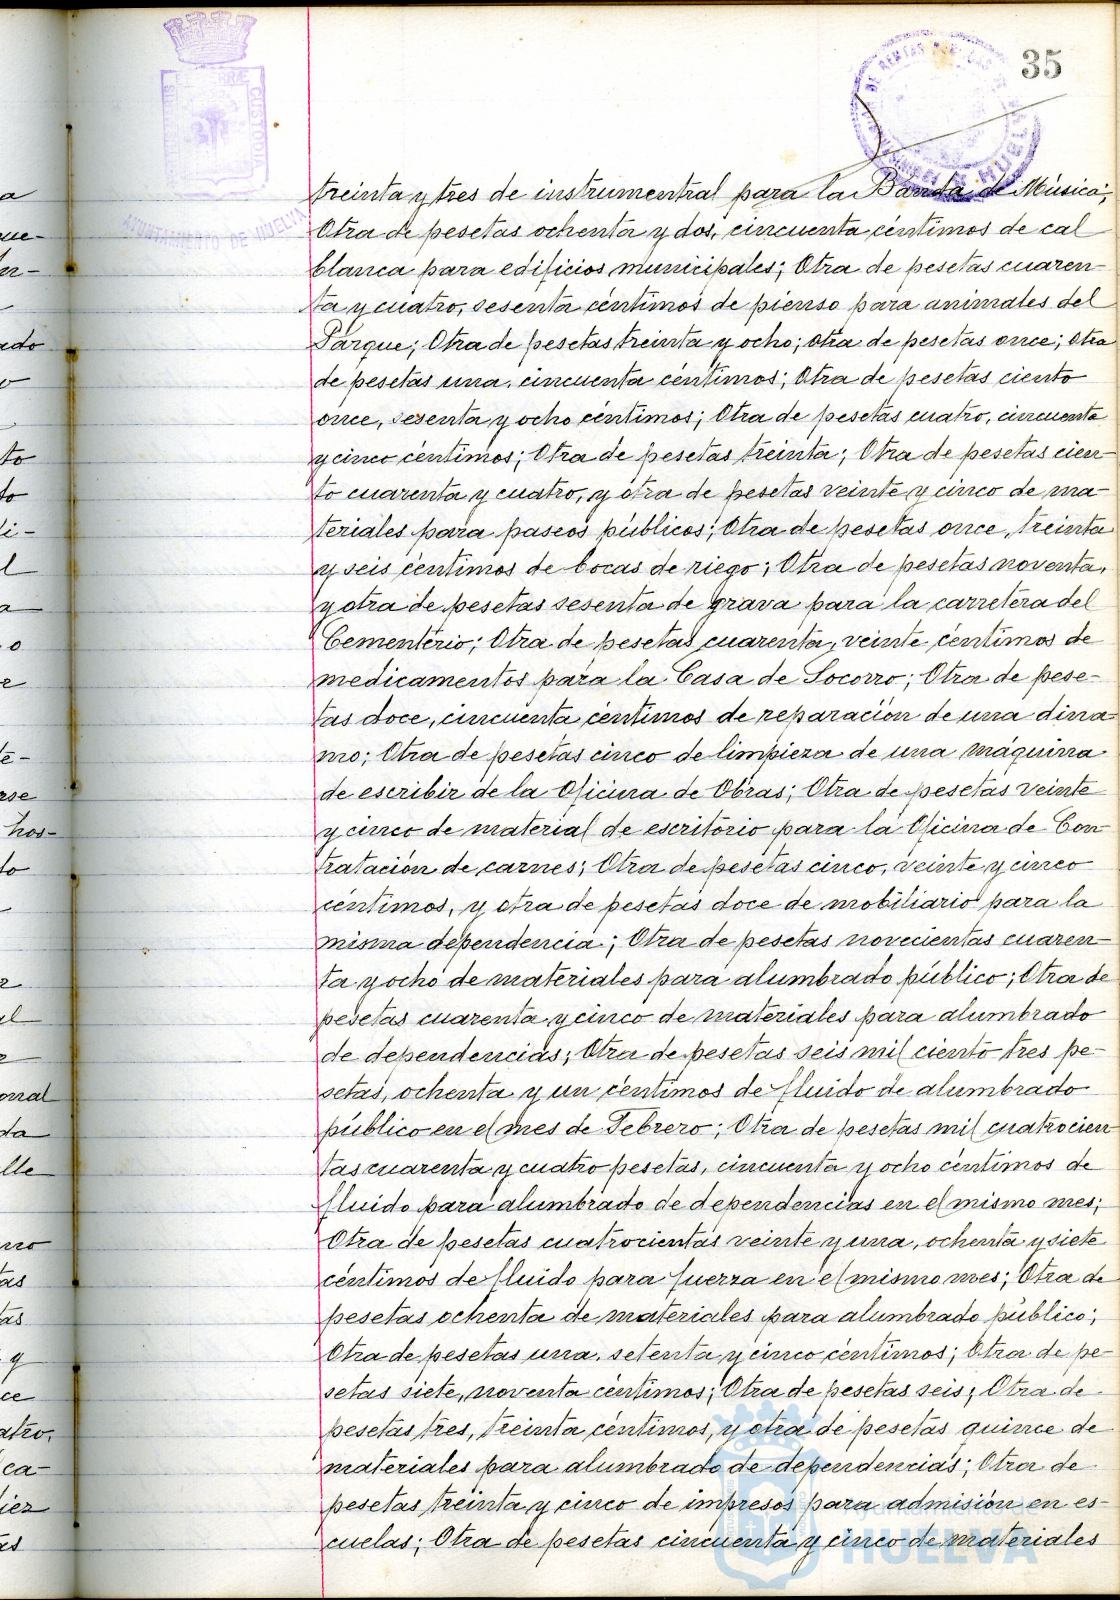 35
AYUNTAMIENTO DE HUELVA
treinta y tres de instrumentral para la Banda de Música;
Otra de pesetas ochenta y dos, cincuenta céntimos de cal
blanca para edificios municipales; Otra de pesetas cuaren-
ta y cuatro, sesenta céntimos de pienso para animales del
Parque; Otra de pesetas treinta y ocho; otra de pesetas once; Otra
de pesetas una, cincuenta céntimos; Otra de pesetas ciento
once, sesenta y ocho céntimos; Otra de pesetas cuatro, cincuenta
y cinco céntimos; Otra de pesetas treinta; Otra de pesetas cien-
to cuarenta y cuatro, y otra de pesetas veinte y cinco de ma-
teriales para paseos públicos; Otra de pesetas once, treinta
y seis céntimos de bocas de riego; Otra de pesetas noventa,
y otra de pesetas sesenta de grava para la carretera del
Cementerio; Otra de pesetas cuarenta, veinte céntimos de
medicamentos para la Casa de Socorro; Otra de pese-
tas doce, cincuenta céntimos de reparación de una dina-
mo; Otra de pesetas cinco de limpieza de una máquina
de escribir de la Oficina de Obras; Otra de pesetas veinte
y cinco de material de escritorio para la Oficina de Con-
tratación de carnes; Otra de pesetas cinco, veinte y cinco
céntimos, y otra de pesetas doce de mobiliario para la
misma dependencia; Otra de pesetas novecientas cuaren-
ta y ocho de materiales para alumbrado público; Otra de
pesetas cuarenta y cinco de materiales para alumbrado
de dependencias; Otra de pesetas seis mil ciento tres pe-
setas, ochenta y un céntimos de fluido de alumbrado
público en el mes de Febrero; Otra de pesetas mil cuatrocien
tas cuarenta y cuatro pesetas, cincuenta y ocho céntimos de
fluido para alumbrado de dependencias en el mismo mes;
Otra de pesetas cuatrocientas veinte y una, ochenta y siete
céntimos de fluido para fuerza en el mismo mes; Otra de
pesetas ochenta de materiales para alumbrado público;
Otra de pesetas una, setenta y cinco céntimos; Otra de pe-
setas siete, noventa céntimos; Otra de pesetas seis; Otra de
pesetas tres, treinta céntimos, y otra de pesetas quince de
materiales para alumbrado de dependencias; Otra de
pesetas treinta y cinco de impresos para admisión en es-
cuelas; Otra de pesetas cincuenta y cinco de materiales
Ayuntamiento de
HUELVA